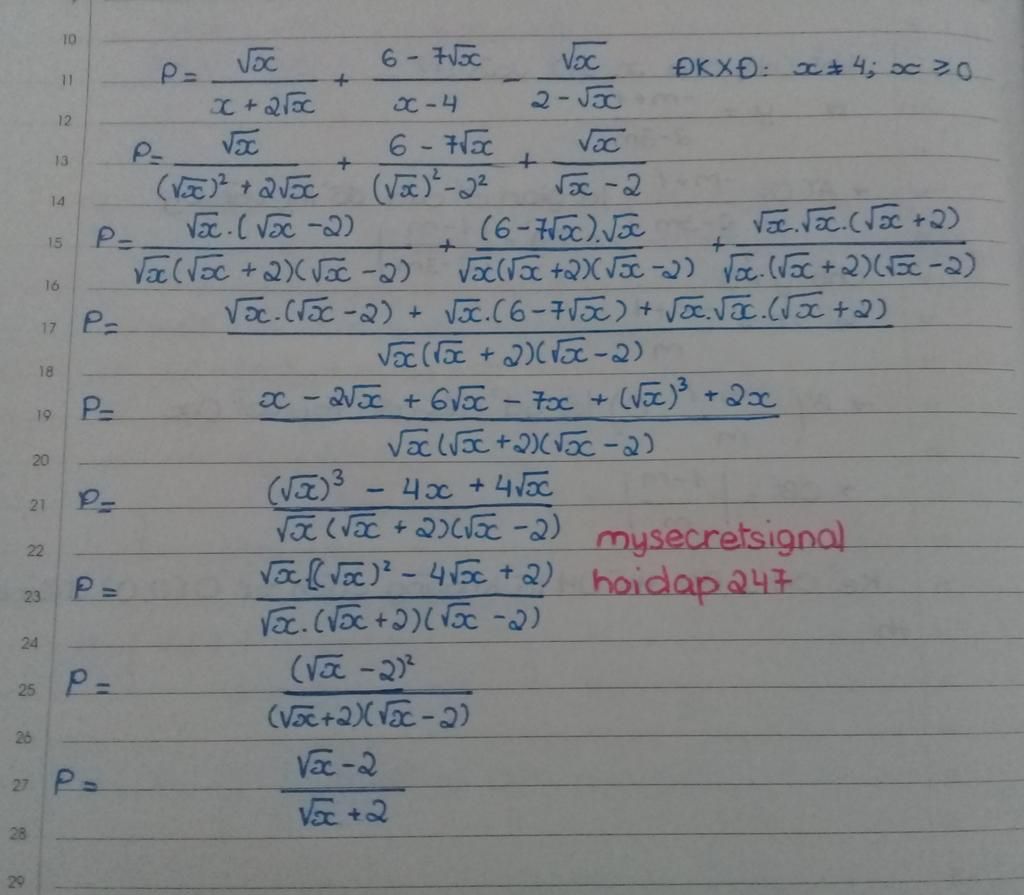 10
11 P = √x / (x + 2√x) + (6 - 7√x) / (x - 4) - √x / (2 - √x) ĐKXĐ: x ≠ 4; x ≥ 0
12
13 P = √x / ((√x)² + 2√x) + (6 - 7√x) / ((√x)² - 2²) + √x / (√x - 2)
14
15 P = √x.(√x - 2) / (√x(√x + 2)(√x - 2)) + (6 - 7√x).√x / (√x(√x + 2)(√x - 2)) + √x.√x.(√x + 2) / (√x.(√x + 2)(√x - 2))
16
17 P = (√x.(√x - 2) + √x.(6 - 7√x) + √x.√x.(√x + 2)) / (√x(√x + 2)(√x - 2))
18
19 P = (x - 2√x + 6√x - 7x + (√x)³ + 2x) / (√x(√x + 2)(√x - 2))
20
21 P = ((√x)³ - 4x + 4√x) / (√x(√x + 2)(√x - 2))
22 mysecretsignal
23 P = √x[(√x)² - 4√x + 2) / (√x.(√x + 2)(√x - 2)) hoidap247
24
25 P = (√x - 2)² / ((√x + 2)(√x - 2))
26
27 P = (√x - 2) / (√x + 2)
28
29